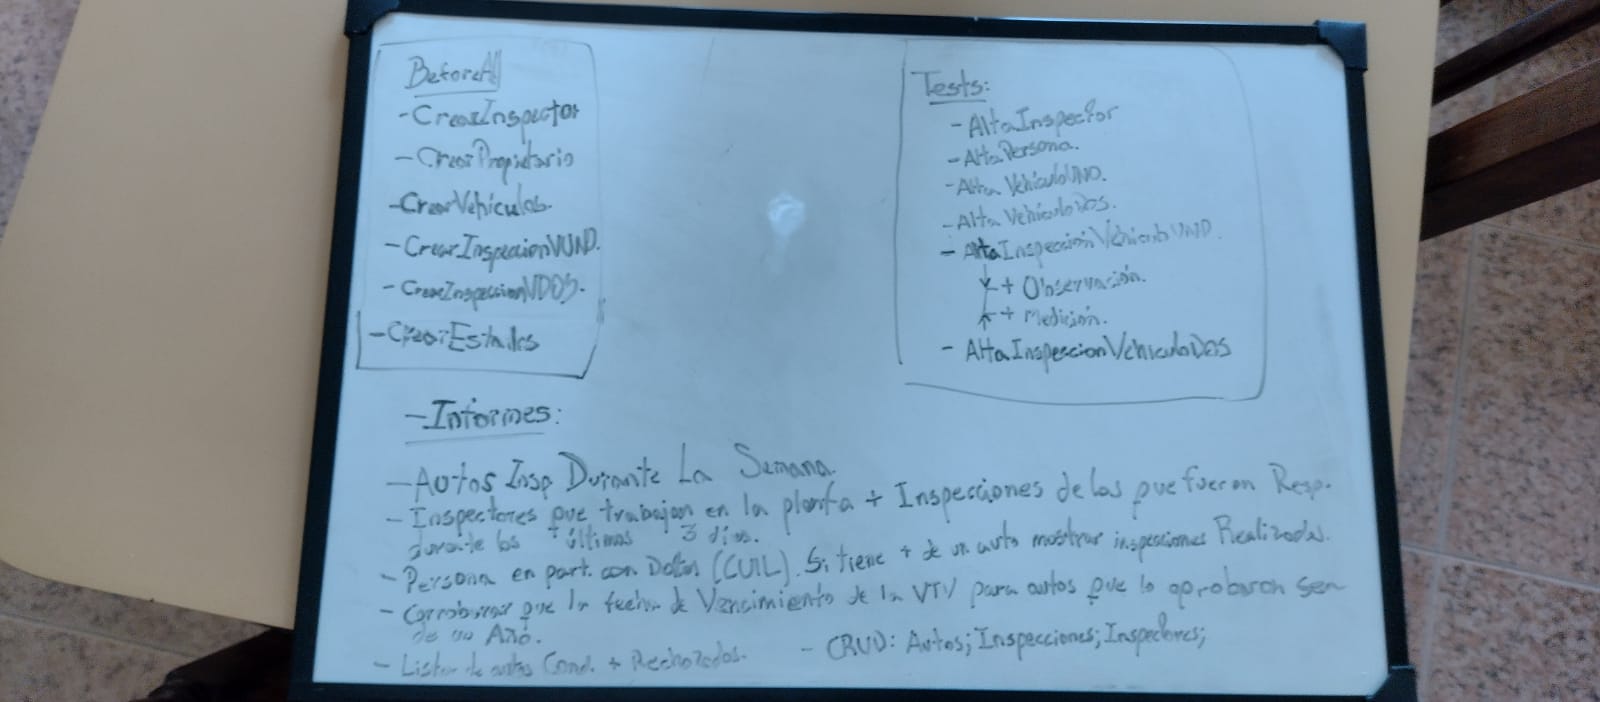 BeforeAll
- CrearInspector
- CrearPropietario
- CrearVehiculos.
- CrearInspeccionVUNO.
- CrearInspeccionVDOS.
- CrearEstados
Tests:
- AltaInspector
- AltaPersona.
- Alta VehículoUNO.
- Alta VehículoDos.
- AltaInspeccionVehiculoUNO.
+ Observación.
+ Medición.
- AltaInspeccionVehiculoDOS
- Informes:
- Autos Insp Durante La Semana.
- Inspectores que trabajan en la planta + Inspecciones de las que fueron Resp.
durante los últimos 3 días.
- Persona en part. con (CUIL). Si tiene + de un auto mostrar inspecciones Realizadas.
- Corroborar que la fecha de Vencimiento de la VTV para autos que lo aprobaron sea
de un Año.
- de autos Cond. + Rechazados.
- CRUD: Autos; Inspecciones; Inspectores;